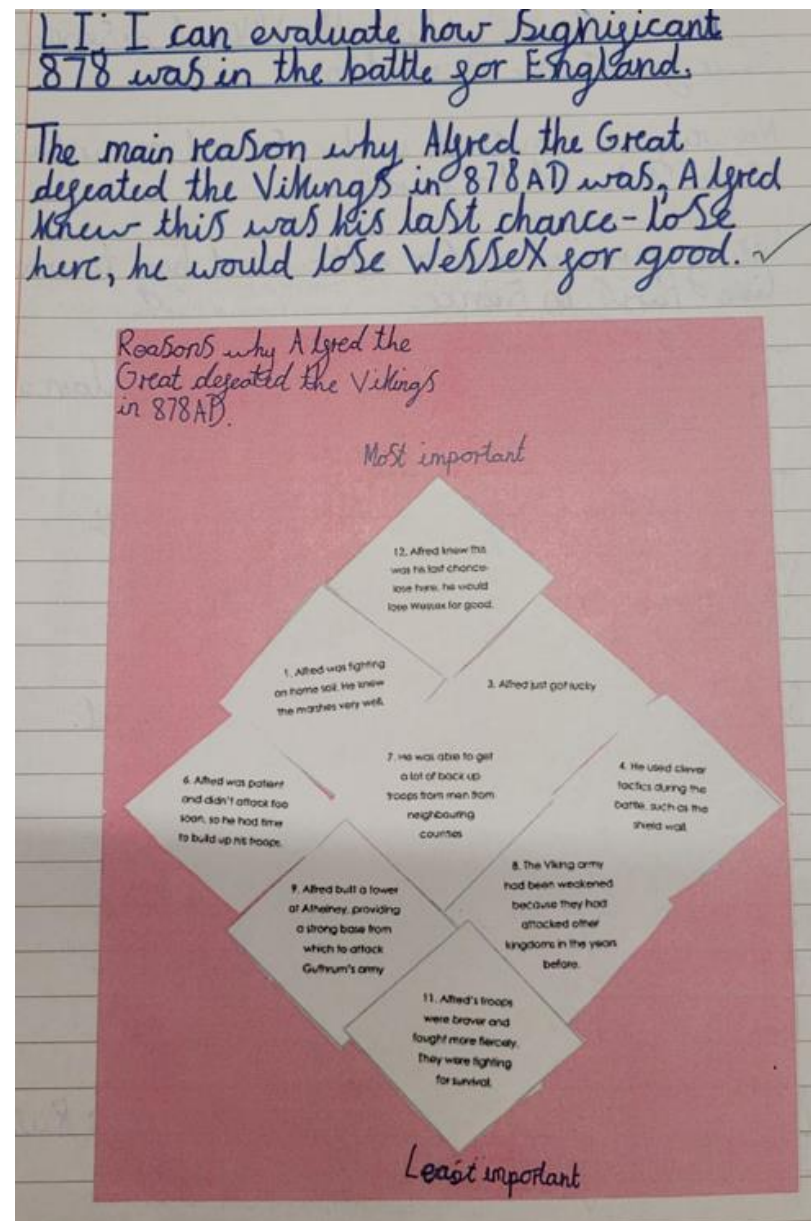 LI: I can evaluate how significant
878 was in the battle for England.
The main reason why Alfred the Great
defeated the Vikings in 878AD was, Alfred
knew this was his last chance-lose
here, he would lose Wessex for good.
Reasons why Alfred the
Great defeated the Vikings
in 878AD.
Most important
12. Alfred knew this
was his last chance-
lose here, he would
lose Wessex for good.
1. Alfred was fighting
on home soil. He knew
the marshes very well.
3. Alfred just got lucky
6. Alfred was patient
and didn't attack too
soon, so he had time
to build up his troops.
7. He was able to get
a lot of back up
troops from men from
neighbouring
counties
4. He used clever
tactics during the
battle, such as the
shield wall.
9. Alfred built a tower
at Athelney, providing
a strong base from
which to attack
Guthrum's army
8. The Viking army
had been weakened
because they had
attacked other
kingdoms in the years
before.
11. Alfred's troops
were braver and
fought more fiercely.
They were fighting
for survival.
Least important